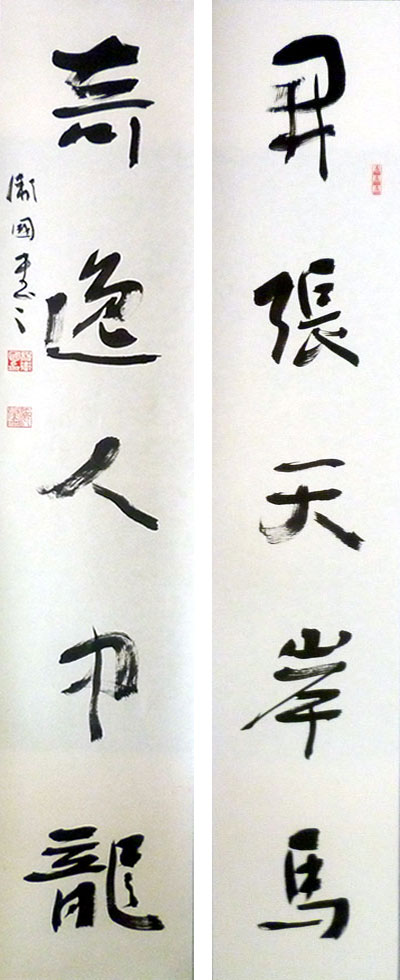 開張天岸馬
奇逸人中龍
國書之